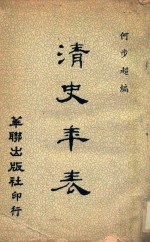 何步超編
清史年表
華聯出版社印行